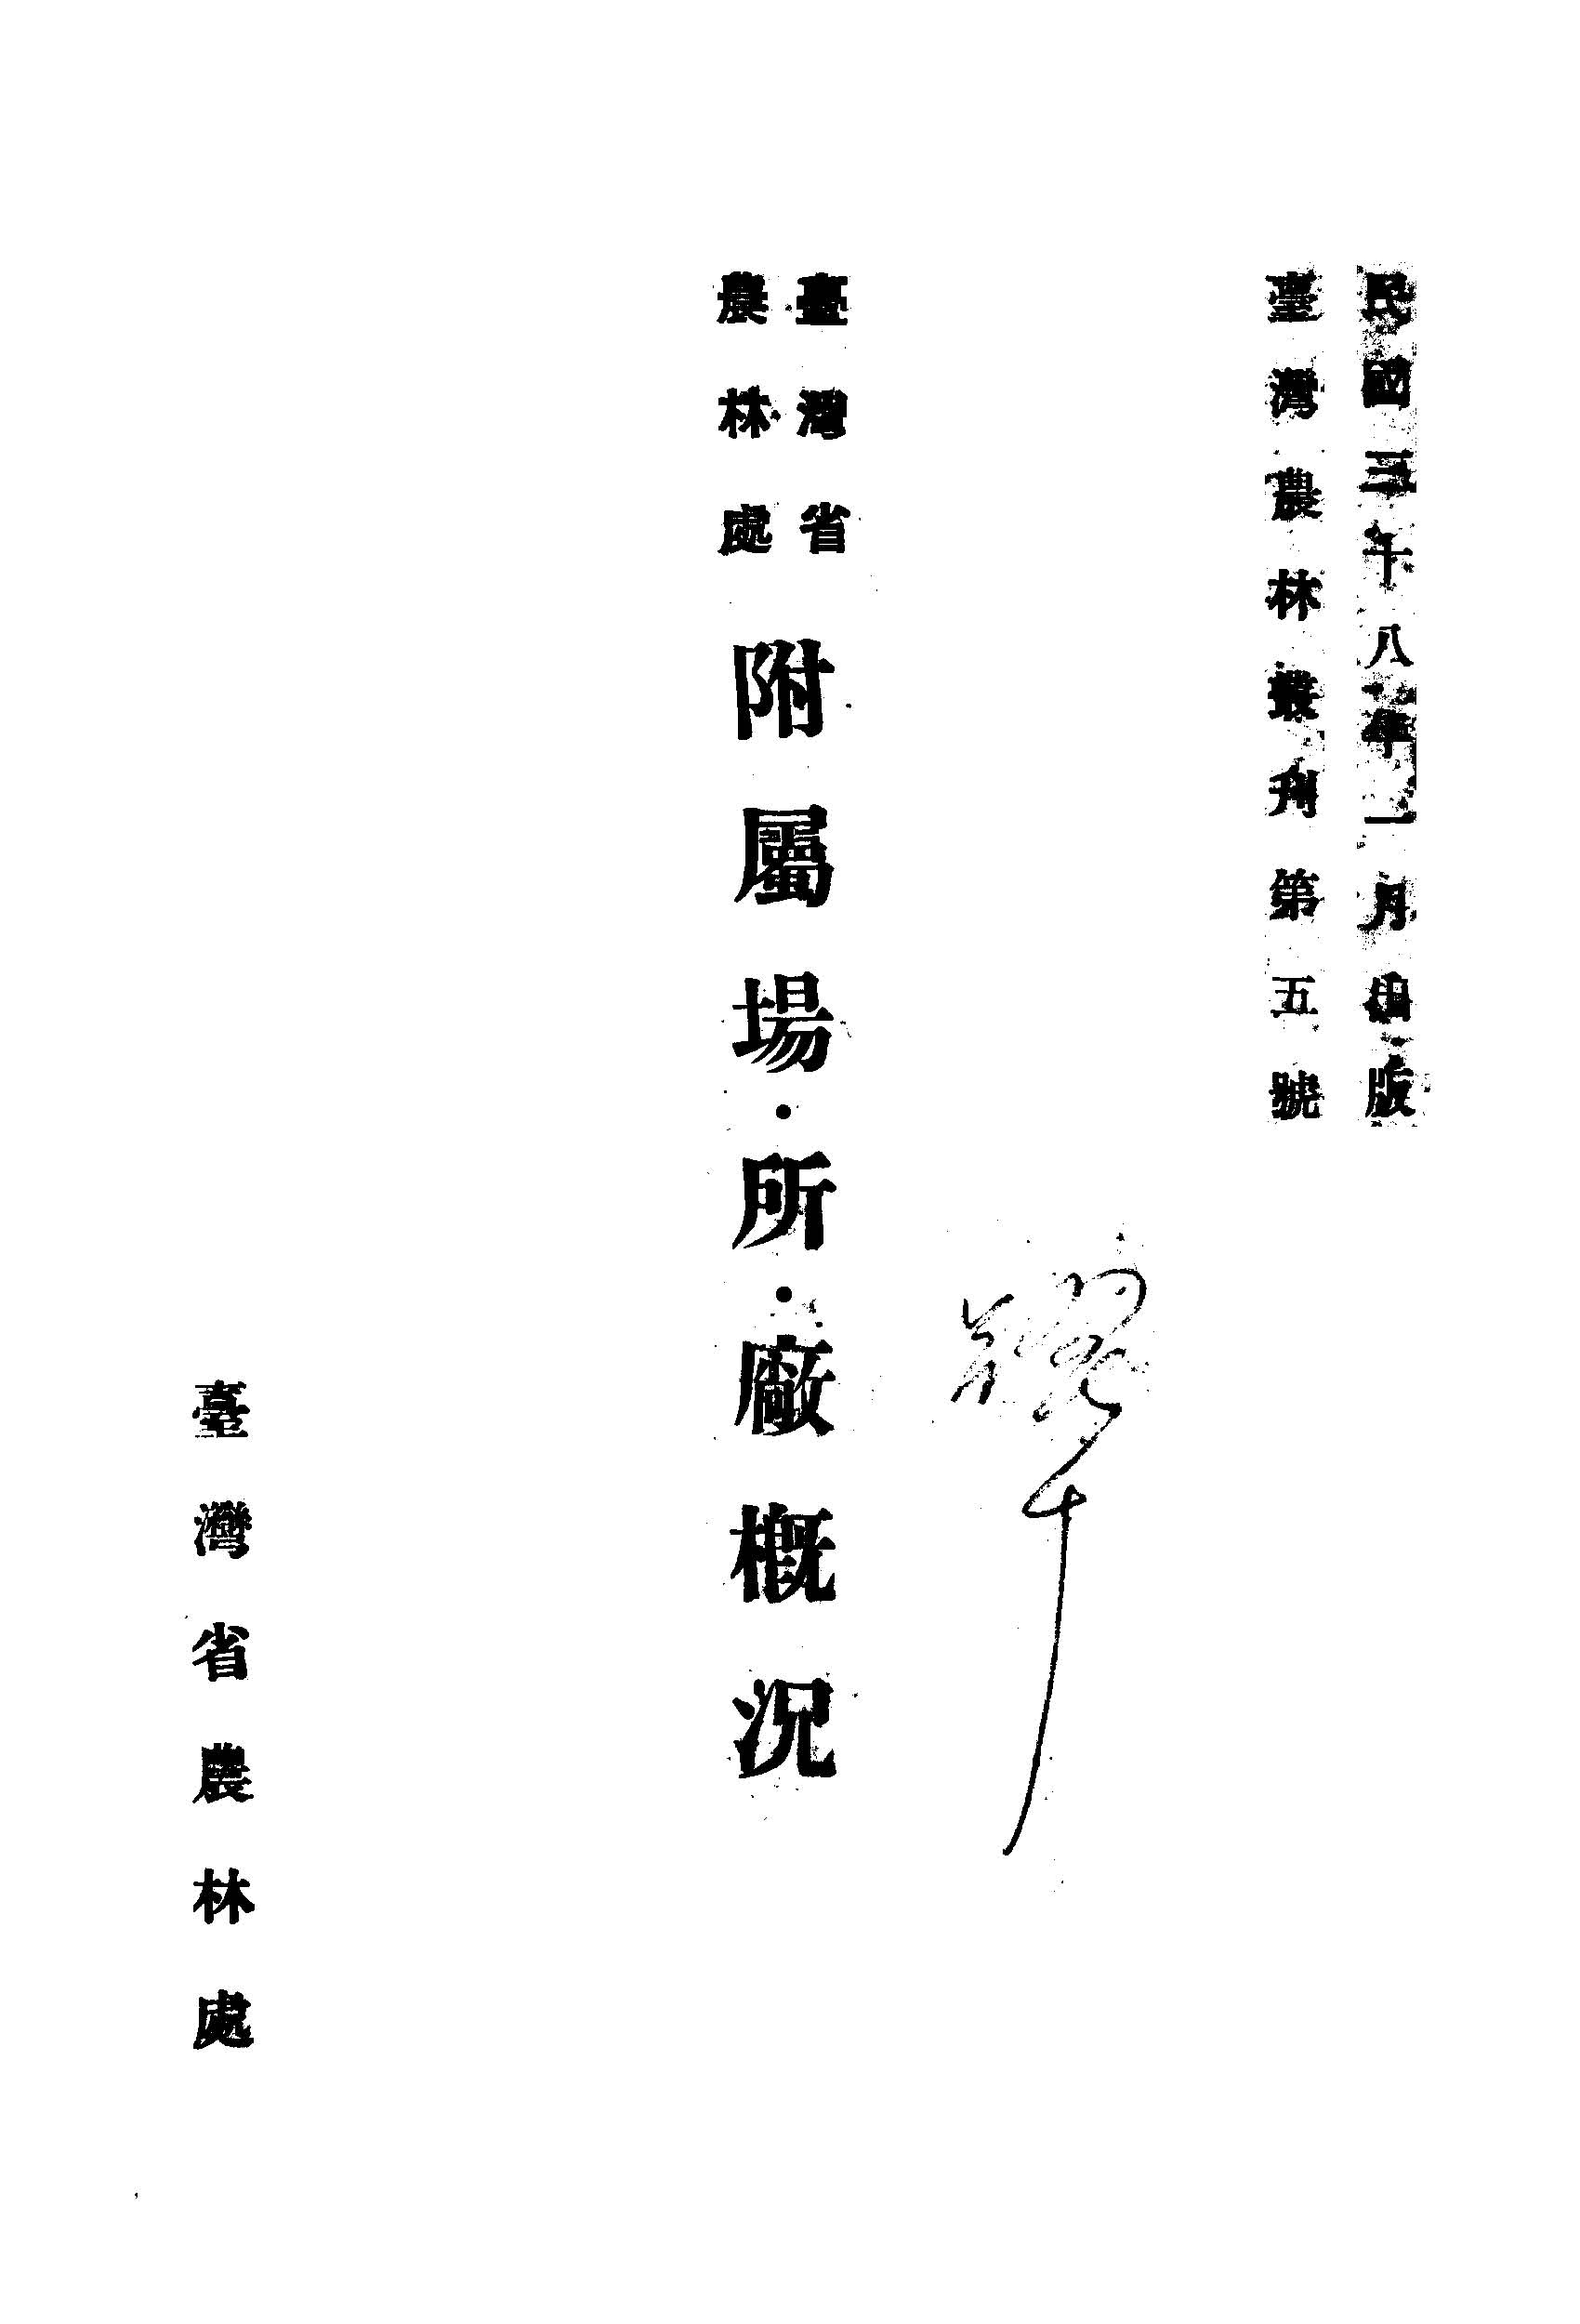 民國三十八年一月出版
臺灣農林叢刊第五號
臺灣省
農林處
附屬場·所·廠概況
臺灣省農林處